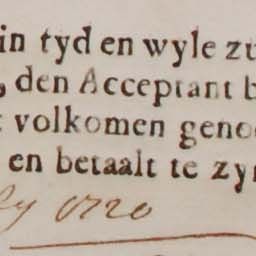 in tyd en wyle zu
, den Acceptant b
volkomen geno
en betaalt te zy